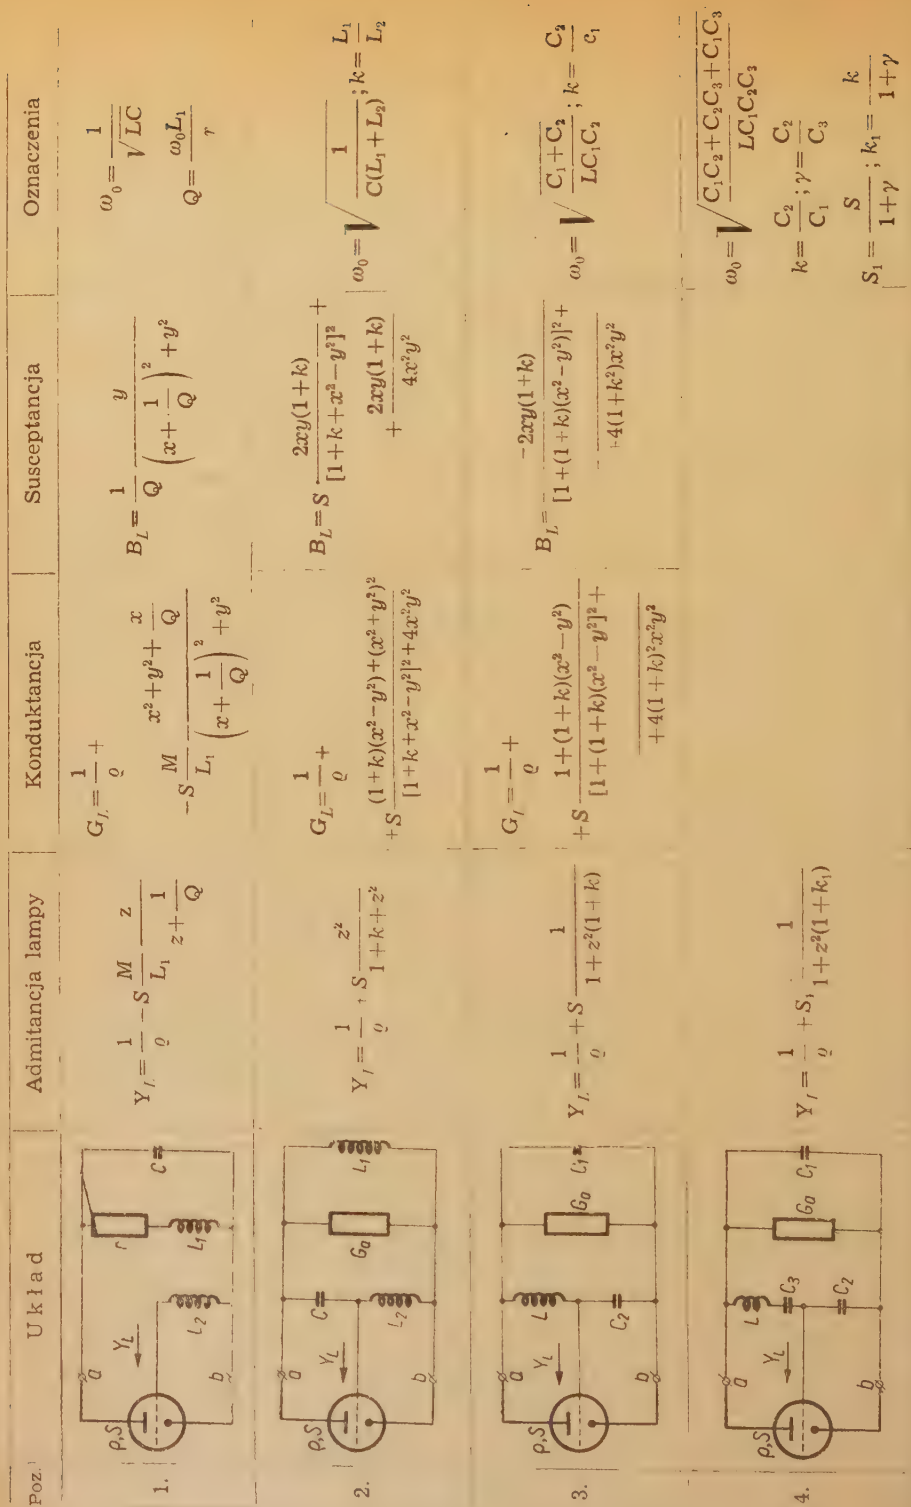 Poz. Układ Admitancja lampy Konduktancja Susceptancja Oznaczenia
1.
ρ,S a Y_L b L_2 r L_1 C
Y_L = 1/ϱ − S M/L_1 z/(z + 1/Q)
G_L = 1/ϱ +
−S M/L_1 (x² + y² + x/Q)/((x + 1/Q)² + y²)
B_L = 1/Q y/((x + 1/Q)² + y²)
ω_0 = 1/√(LC)
Q = ω_0L_1/r
2.
ρ,S a Y_L b C L_2 G_a L_1
Y_L = 1/ϱ + S z²/(1+k+z²)
G_L = 1/ϱ +
+S ((1+k)(x²−y²)+(x²+y²)²)/([1+k+x²−y²]²+4x²y²)
B_L = S 2xy(1+k)/[1+k+x²−y²]² +
+ 2xy(1+k)/4x²y²
ω_0 = √(1/(C(L_1+L_2))); k = L_1/L_2
3.
ρ,S a Y_L b L C_2 G_a C_1
Y_L = 1/ϱ + S 1/(1+z²(1+k))
G_L = 1/ϱ +
+S (1+(1+k)(x²−y²))/([1+(1+k)(x²−y²]²+
+4(1+k)²x²y²)
B_L = −2xy(1+k)/([1+(1+k)(x²−y²)]²+
+4(1+k²)x²y²)
ω_0 = √((C_1+C_2)/(LC_1C_2)); k = C_2/c_1
4.
ρ,S a Y_L b L C_3 C_2 G_a C_1
Y_L = 1/ϱ + S_1 1/(1+z²(1+k_1))
ω_0 = √((C_1C_2+C_2C_3+C_1C_3)/(LC_1C_2C_3))
k = C_2/C_1; γ = C_2/C_3
S_1 = S/(1+γ); k_1 = k/(1+γ)